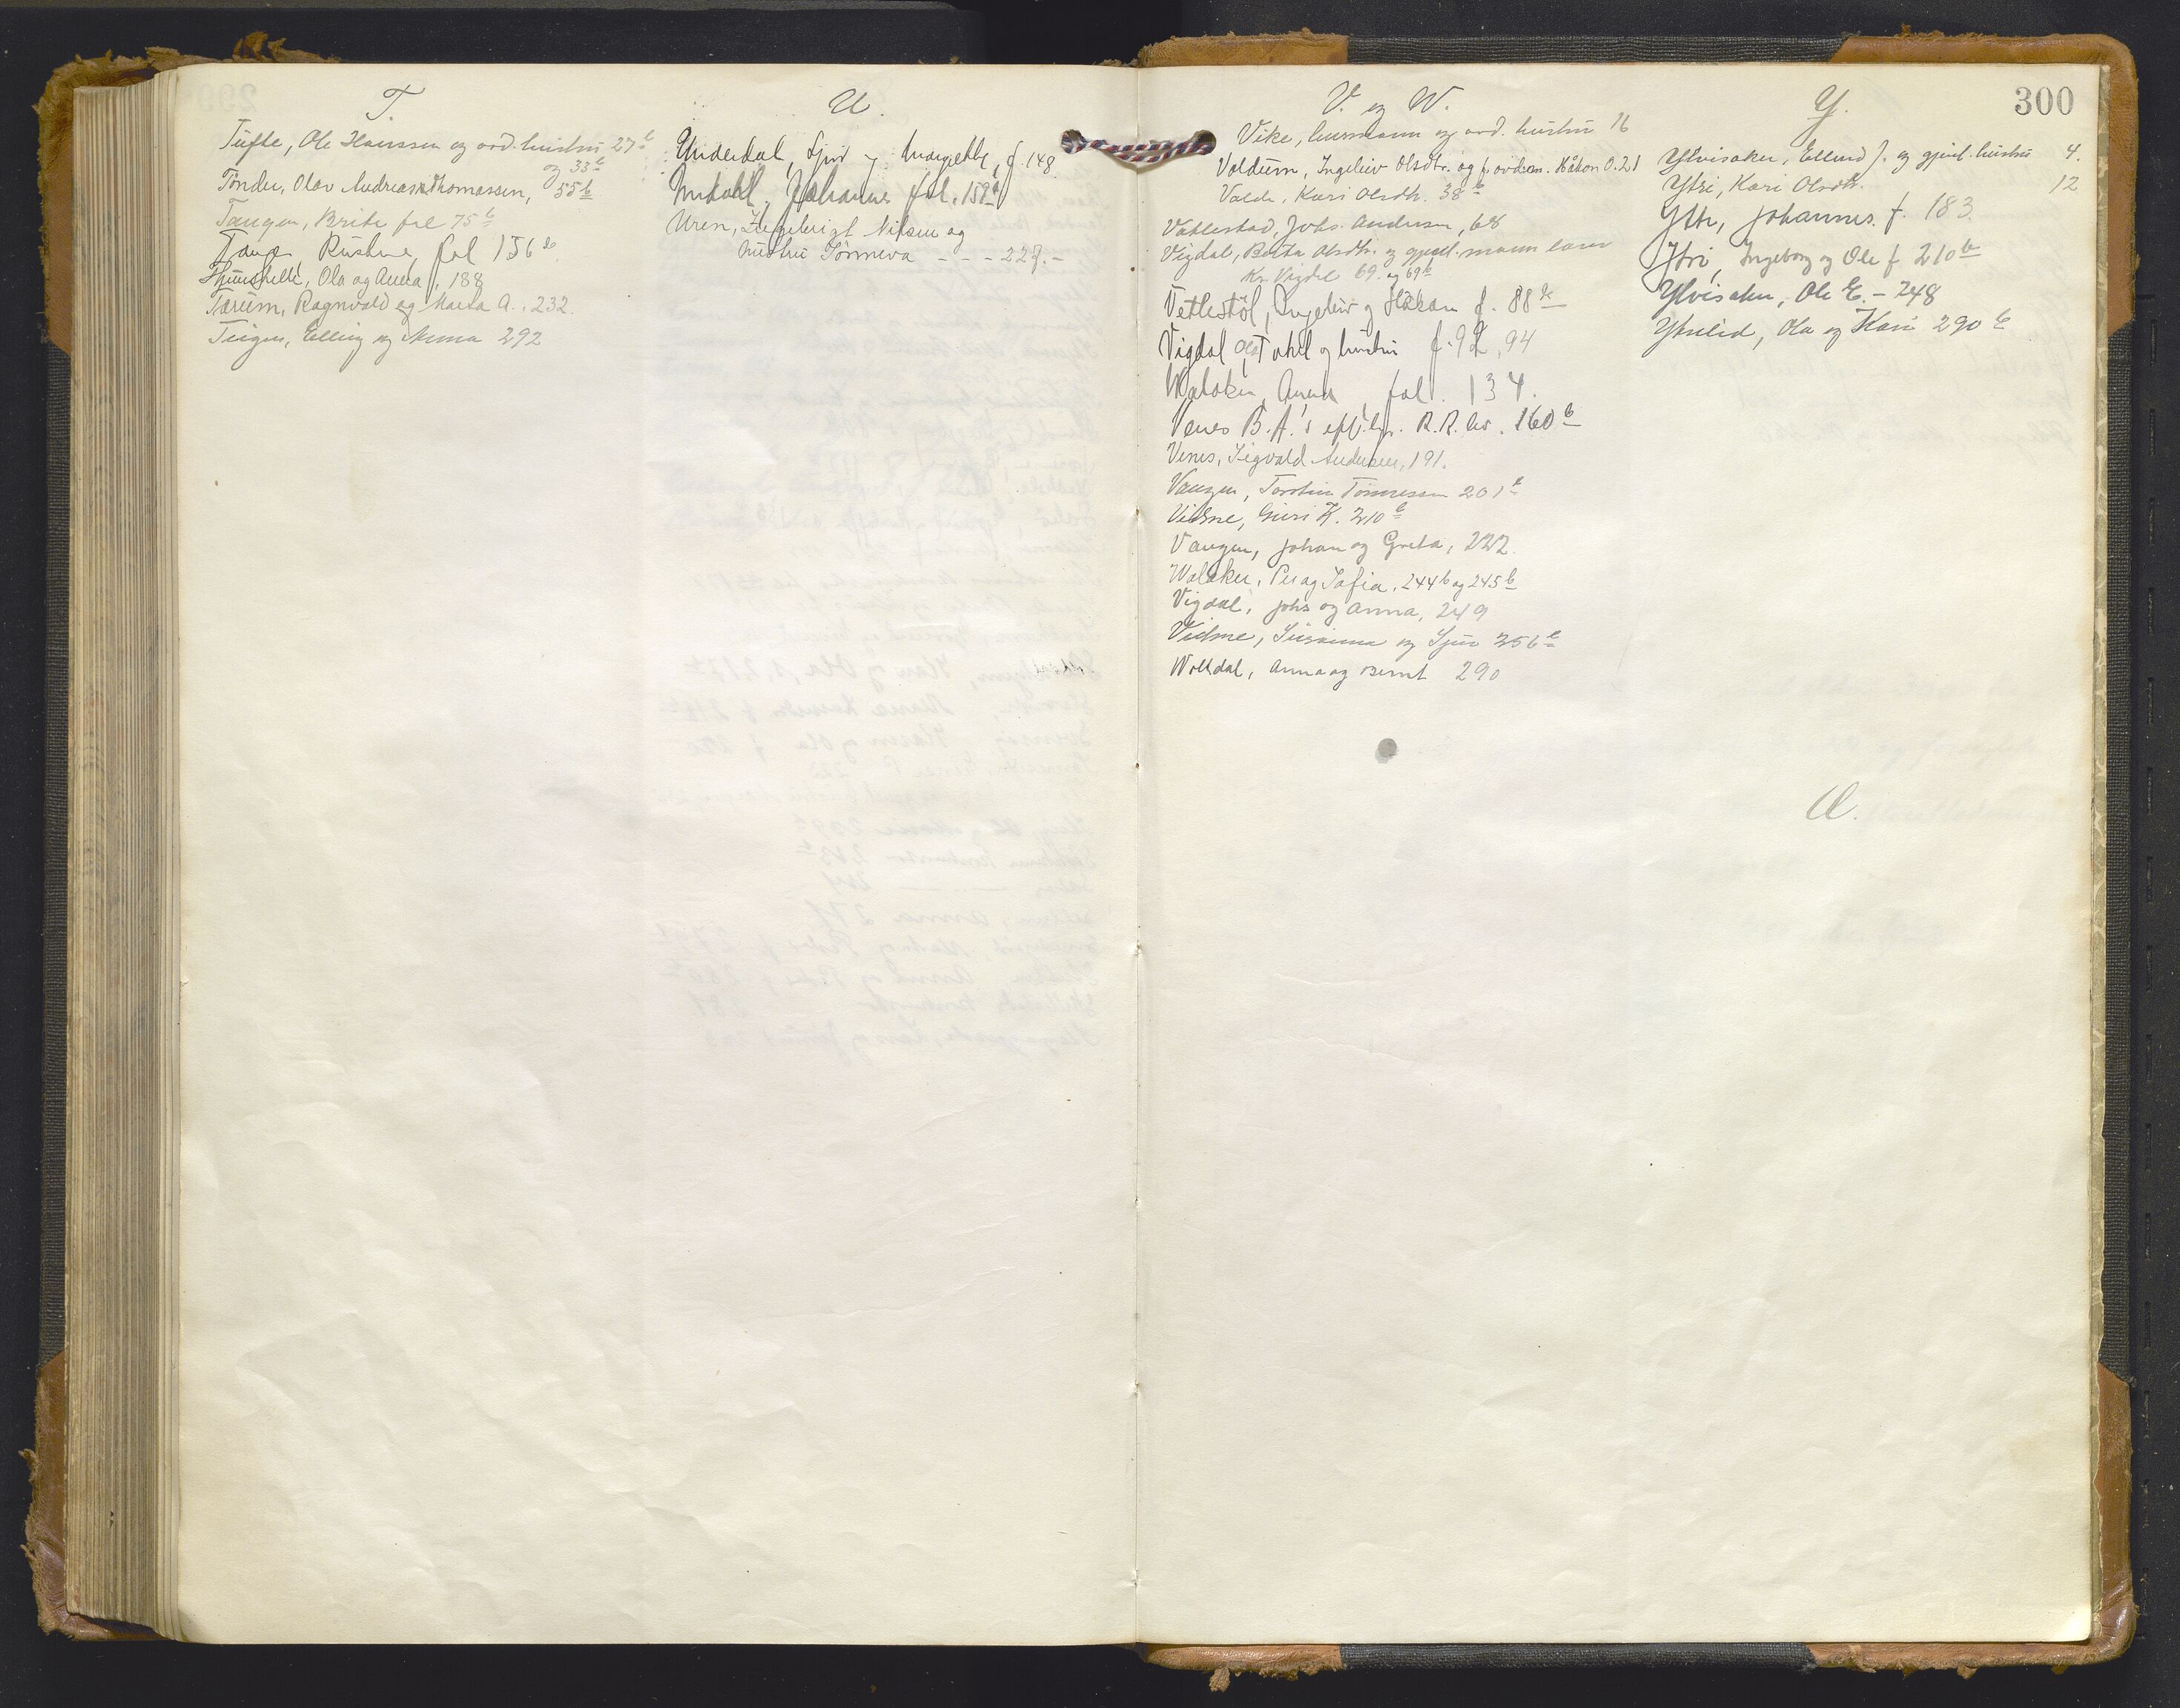 T.
Tufte, Ole Hanssen og avd. hustru 27 b
og 33 b
Tønder, Olav Andreas Thomassen, 55 b
Taugen, Brite fol 75 b
Tange, Kristine, fol 156 b
Ola og Anna, 188
Tærum, Ragnvald og Marta A. . 232.
Teigen, Elling og Anna 292
U.
Underdal, Sjur og Margrethe, f. 148
Johannes fol. 159 b
Uren, Ingebrigt Nilsen og
hustru Sønneva - - - 227. -
300
V. og W.
Vike, husmann og avd. hustru 16
Valdum, Ingeleiv Olsdtr. og f. avd. m. Håkon O. 21
Valde, Kari Olsdtr. 38 b
Vatlestad, Johs. Andersen, 68
Vigdal, Brita Olsdtr. og gjenl. mann
Kr. Vigdal 69. og 69 b
Vetlestøl, Ingeleiv og Håkon f. 88 b
Vigdal, og hustru f. 92, 94
Walaker, Anna, fol. 134.
Venes B. A.'s 160 b
Venes, Sigvald Andersen, 191.
Vangen, Torstein Tønnessen 201 b
Vidme, Guri K. 210 b
Vangen, Johan og Greta, 222.
Walaker, Per og Sofia, 244 b og 245 b
Vigdal, Johs og Anna, 249
Vidme, Susanna og Sjur 256 b
Wolldal, Anna og Bernt 290
Y.
Ylvisaker, Ellend J. og gjenl. hustru 4.
Ytri, Kari Olsdtr. 12
Ytri, Johannes. f. 183.
Ytri, Ingeborg og Ole f. 210 b
Ylvisaker, Ole E. - 248
Ytrelid, Ola og Kari 290 b
Æ.